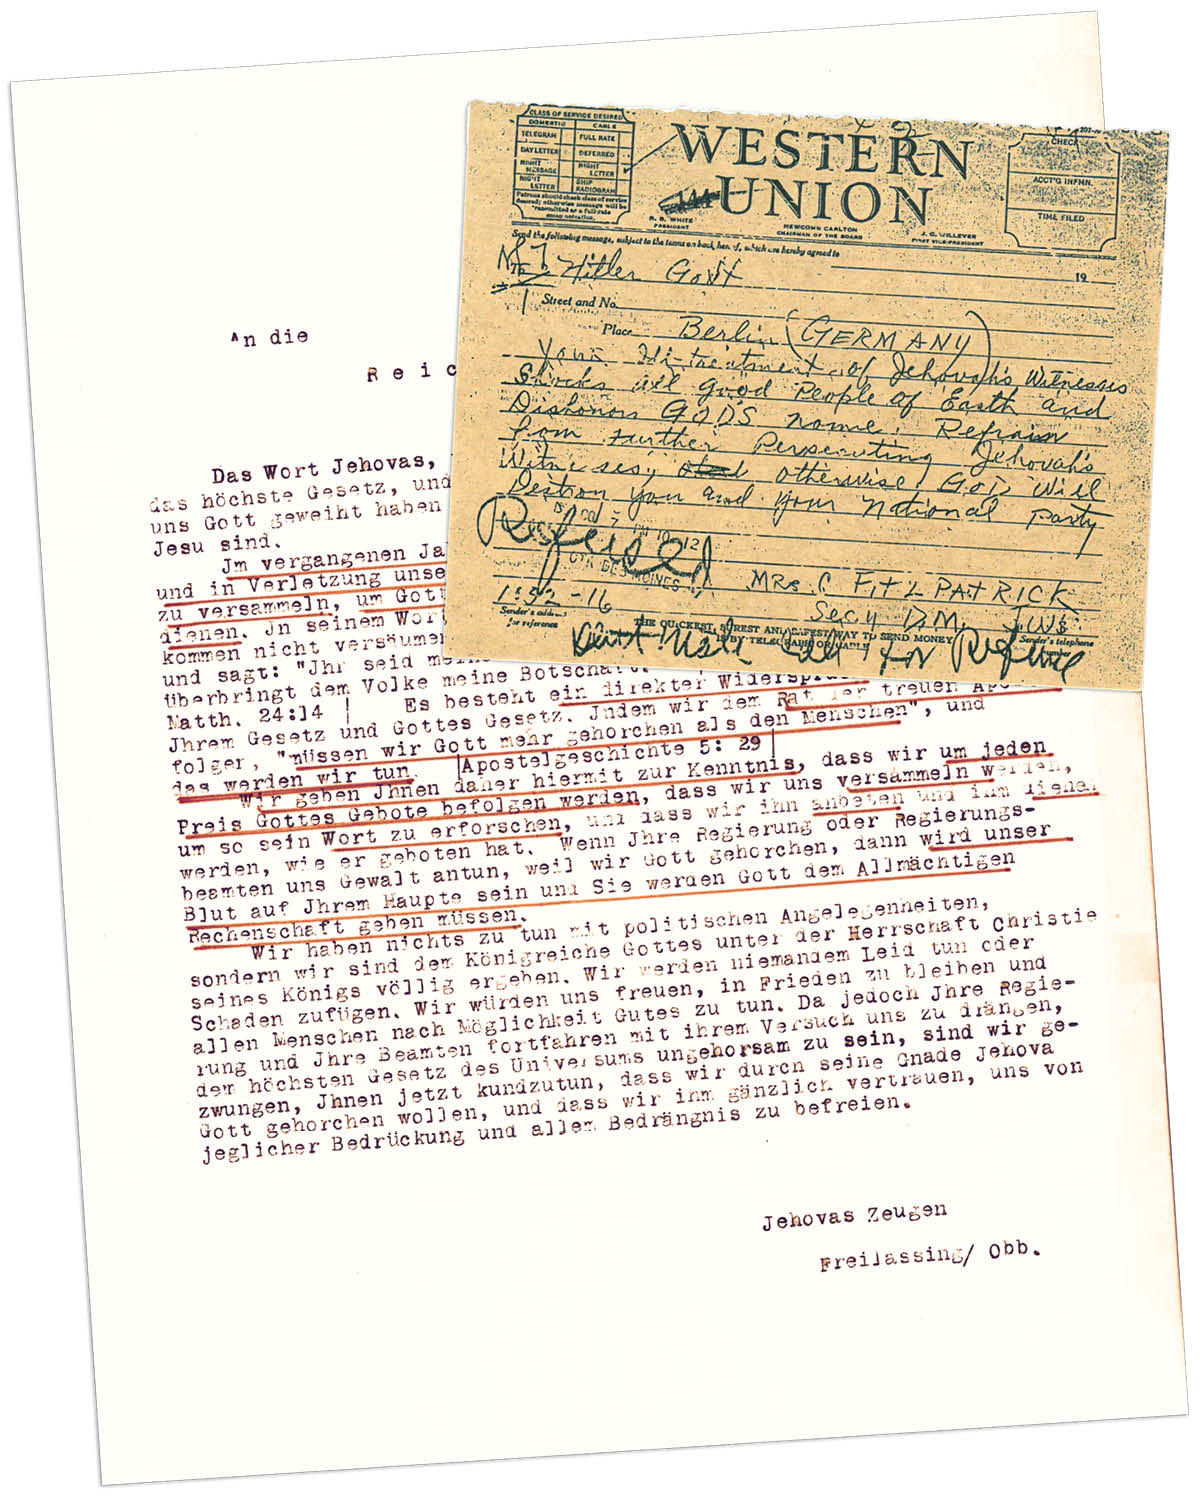 An die
Reic
Das Wort Jehovas,
das höchste Gesetz, und
uns Gott geweiht haben
Jesu sind.
Jm vergangenen Ja
und in Verletzung unse
zu versammeln, um Gott
dienen. Jn seinem Wort
kommen nicht versäumen
und sagt: "Jhr seid mei
überbringt dem Volke meine Botschaft.
Matth. 24:14 | Es besteht ein direkter Widerspru
Jhrem Gesetz und Gottes Gesetz. Jndem wir dem Rat der treuen Apo
folger, "müssen wir Gott mehr gehorchen als den Menschen", und
das werden wir tun. |Apostelgeschichte 5: 29|
Wir geben Jhnen daher hiermit zur Kenntnis, dass wir um jeden
Preis Gottes Gebote befolgen werden, dass wir uns versammeln werden,
um so sein Wort zu erforschen, und dass wir ihn anbeten und ihm dienen
werden, wie er geboten hat. Wenn Jhre Regierung oder Regierungs-
beamten uns Gewalt antun, weil wir Gott gehorchen, dann wird unser
Blut auf Jhrem Haupte sein und Sie werden Gott dem Allmächtigen
Rechenschaft geben müssen.
Wir haben nichts zu tun mit politischen Angelegenheiten,
sondern wir sind dem Königreiche Gottes unter der Herrschaft Christie
seines Königs völlig ergeben. Wir werden niemandem Leid tun oder
Schaden zufügen. Wir würden uns freuen, in Frieden zu bleiben und
allen Menschen nach Möglichkeit Gutes zu tun. Da jedoch Jhre Regie-
rung und Jhre Beamten fortfahren mit ihrem Versuch uns zu drängen,
dem höchsten Gesetz des Universums ungehorsam zu sein, sind wir ge-
zwungen, Jhnen jetzt kundzutun, dass wir durch seine Gnade Jehova
Gott gehorchen wollen, und dass wir ihm gänzlich vertrauen, uns von
jeglicher Bedrückung und allem Bedrängnis zu befreien.
Jehovas Zeugen
Freilassing/ Obb.
CLASS OF SERVICE DESIRED
DOMESTIC CABLE
TELEGRAM FULL RATE
DAY LETTER DEFERRED
NIGHT MESSAGE NIGHT LETTER
NIGHT LETTER SHIP RADIOGRAM
Patrons should check class of service
desired; otherwise message will be
transmitted as a full-rate
communication.
WESTERN
UNION
R. B. WHITE
PRESIDENT
NEWCOMB CARLTON
CHAIRMAN OF THE BOARD
J. C. WILLEVER
FIRST VICE-PRESIDENT
CHECK
ACCT'G INFMN.
TIME FILED
Send the following message, subject to the terms on back hereof, which are hereby agreed to
To Hitler Govt 19
Street and No.
Place Berlin (GERMANY)
Your Ill-treatment of Jehovah's Witnesses
Shocks all good People of Earth and
Dishonors GOD'S name. Refrain
from further Persecuting Jehovah's
Witnesses; otherwise GOD will
Destroy you and your national party
Refused
MRS. C FITZPATRICK
Secy D.M. J.W's
1:52 - 16
Sender's address
for reference
THE QUICKEST, SUREST AND SAFEST WAY TO SEND MONEY
IS BY TELEGRAPH OR CABLE
Sender's telephone
number